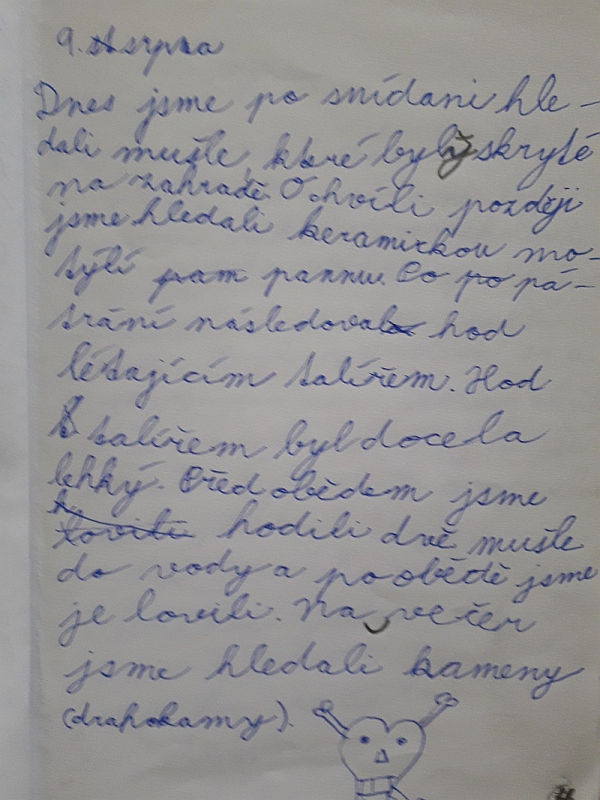 9. srpna
Dnes jsme po snídani hle-
dali mušle, které byly skryté
na zahradě. O chvíli později
jsme hledali keramickou mo-
týlí pannu. Co po pá-
trání následoval hod
létajícím talířem. Hod
talířem byl docela
lehký. Před obědem jsme
hodili dvě mušle
do vody a po obědě jsme
je lovili. Na večer
jsme hledali kameny
(drahokamy).